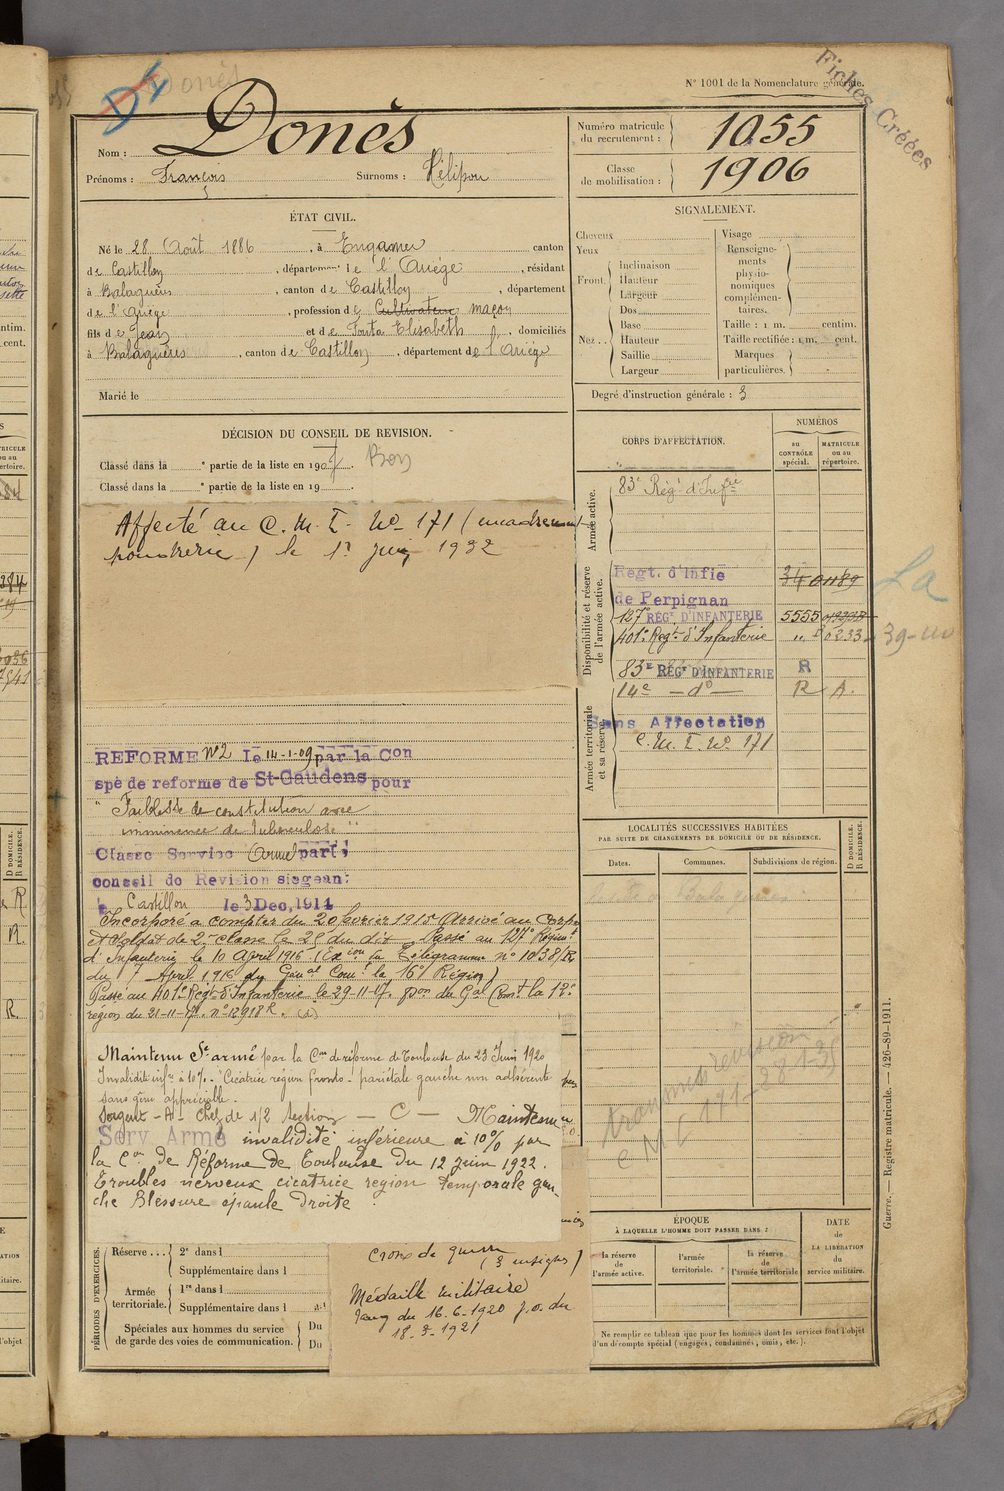 N° 1001 de la Nomenclature générale.
Fiches Créées
Donès
Nom : Donès
Prénoms : François Surnoms : Hélipou
Numéro matricule du recrutement : 1055
Classe de mobilisation : 1906
ÉTAT CIVIL.
Né le 28 Août 1886, à Engomer canton
de Castillon, département de l'Ariège, résidant
à Balaguères, canton de Castillon, département
de l'Ariège, profession de Cultivateur maçon
fils de Jean et de Touta Elisabeth, domiciliés
à Balaguères, canton de Castillon, département de l'Ariège
Marié le
SIGNALEMENT.
Cheveux
Yeux
Front.
Inclinaison
Hauteur
Largeur
Nez..
Dos
Base
Hauteur
Saillie
Largeur
Visage
Renseignements physionomiques complémentaires.
Taille : 1 m. centim.
Taille rectifiée : 1 m. cent.
Marques particulières.
Degré d'instruction générale : 3
DÉCISION DU CONSEIL DE REVISION.
Classé dans la e partie de la liste en 1907. Bon
Classé dans la e partie de la liste en 19 .
Affecté au C.M.I. No 171 (encadrement
poudrerie) le 1r juin 1932
REFORME N°2 le 14-1-09 par la Con
spé de reforme de St-Gaudens pour
" Faiblesse de constitution avec
imminence de tuberculose "
Classé Service Armé part;
conseil de Revision siegeant
à Castillon le 3 Dec, 1914
Incorporé à compter du 20 février 1915 Arrivé au Corps
et Soldat de 2e classe le 28 du dit. Passé au 127e Régimt
d'Infanterie le 10 Avril 1916. (Exion la Télégramme n° 1038/R
du 7 Avril 1916 du Génal Comt la 16e Région)
Passé au 401e Régt d'Infanterie le 29-11-17. pon du Gal Comt la 12e
région du 21-11-17. n° 12918 R.
Maintenu Sce armé par la Con de réforme de Toulouse du 23 Juin 1920
Invalidité infre à 10%. Cicatrice région fronto-pariétale gauche non adhérente
sans gêne appréciable.
Sergent -A- chef de 1/2 section — C — Maintenu
Serv. Armé invalidité inférieure à 10% par
la Con de Réforme de Toulouse du 12 juin 1922.
Troubles nerveux cicatrice region temporale gau-
che Blessure épaule droite
CORPS D'AFFECTATION.
NUMÉROS
au CONTRÔLE spécial.
MATRICULE ou au répertoire.
Armée active.
83e Régt d'Infrie
Disponibilité et réserve de l'armée active.
Regt. d'Infie
de Perpignan
127e REGt D'INFANTERIE 5555
401e Regt d'Infanterie
83E REGt D'INFANTERIE R
14e — do — R A.
Armée territoriale et sa réserve
Sans Affectation
C.M.I. No 171
LOCALITÉS SUCCESSIVES HABITÉES
PAR SUITE DE CHANGEMENTS DE DOMICILE OU DE RÉSIDENCE.
Dates.
Communes.
Subdivisions de région.
D DOMICILE. R RÉSIDENCE.
transmis révision
C M I 171 - 28-1-35
PÉRIODES D'EXERCICES.
Réserve ... 2e dans l
Supplémentaire dans l
Armée territoriale. 1re dans l
Supplémentaire dans l
Spéciales aux hommes du service de garde des voies de communication. Du
Du
Croix de guerre
(3 insignes)
Médaille militaire
rang du 16-6-1920 J.O. du
ÉPOQUE
À LAQUELLE L'HOMME DOIT PASSER DANS :
la réserve de l'armée active.
l'armée territoriale.
la réserve de l'armée territoriale
DATE DE LA LIBÉRATION du service militaire.
Ne remplir ce tableau que pour les hommes dont les services font l'objet
d'un décompte spécial (engagés, condamnés, omis, etc.).
Guerre. — Registre matricule. — 426-89-1911.